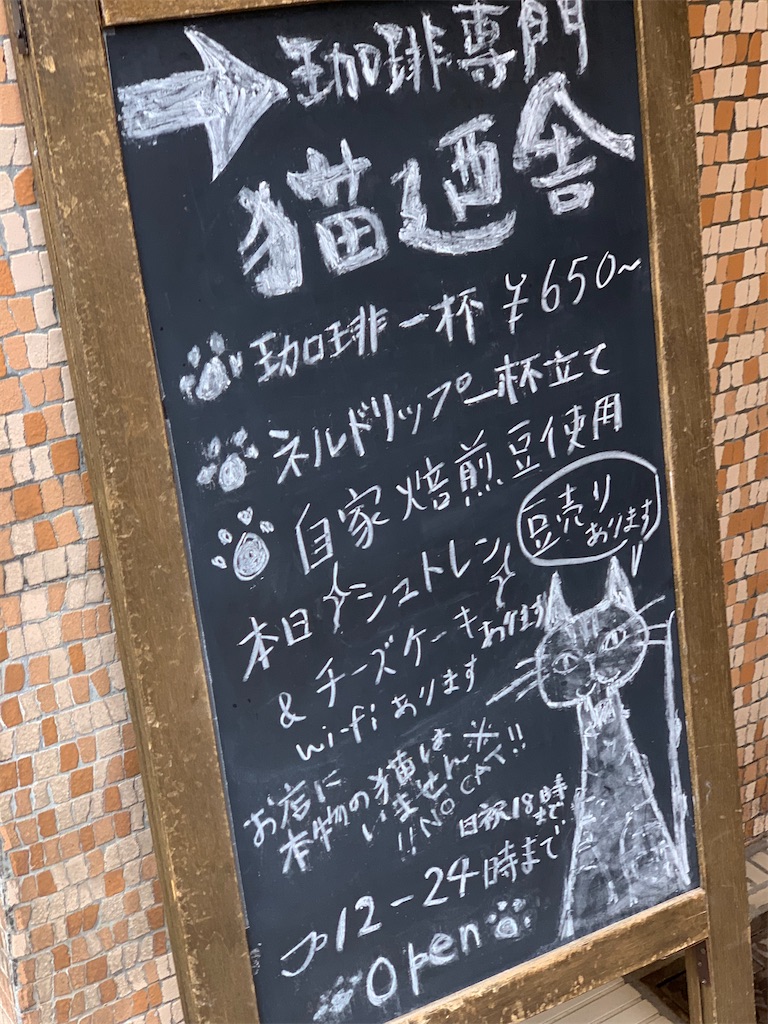 珈琲専門
猫廼舎
珈琲一杯 ¥650~
ネルドリップ一杯立て
自家焙煎豆使用
豆売り
あります
本日シュトレン
&チーズケーキあります
wi-fiあります
お店に
本物の猫は
いません※
!!NO CAT!!
日祝18時
まで
12-24時まで
Open